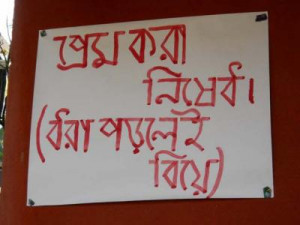 প্রেম করা
নিষেধ।
(ধরা পড়লেই
বিয়ে)